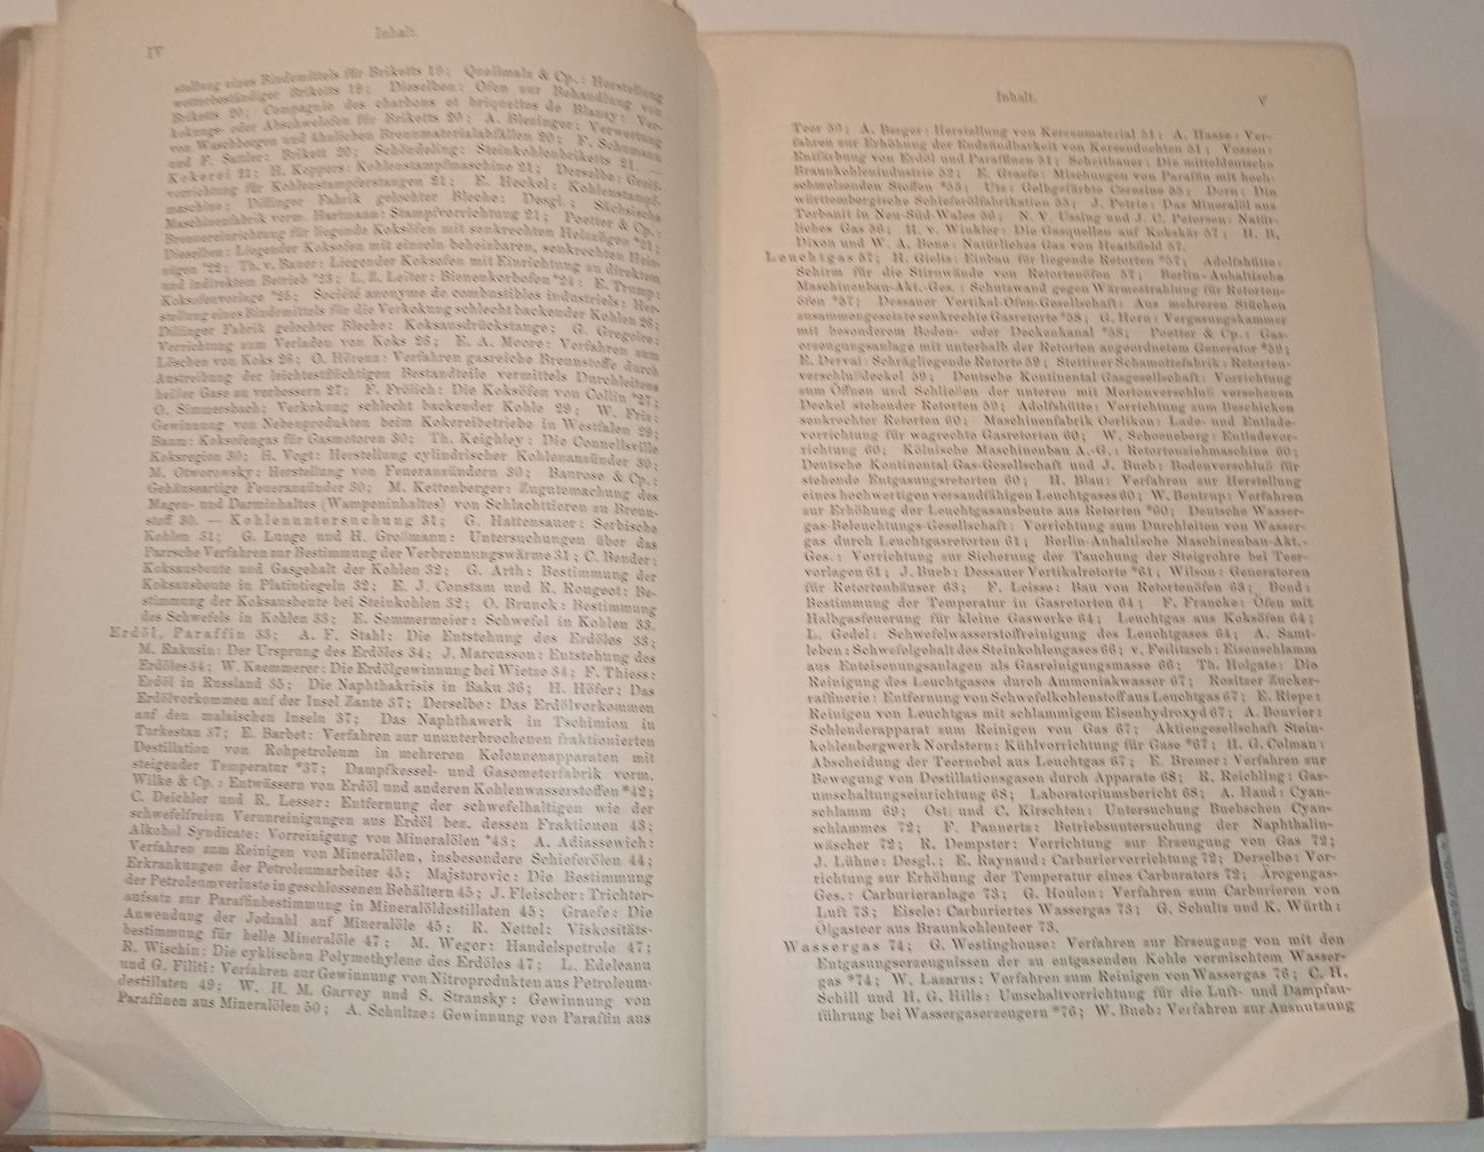 IV
Inhalt.
stellung eines Bindemittels für Briketts 19; Quellmalz & Cp.: Herstellung
wetterbeständiger Briketts 19; Dieselben: Ofen zur Behandlung von
Briketts 20; Compagnie des charbons et briquettes de Blanzy: Ver-
kokungs- oder Abschwelofen für Briketts 20; A. Blezinger: Verwertung
von Waschbergen und ähnlichen Brennmaterialabfällen 20; F. Schumann
und F. Samler: Brikett 20; Schöndeling: Steinkohlenbriketts 21. —
Kokerei 21; H. Koppers: Kohlenstampfmaschine 21; Derselbe: Greif-
vorrichtung für Kohlenstampferstangen 21; E. Heckel: Kohlenstampf-
maschine; Dillinger Fabrik gelochter Bleche: Desgl.; Sächsische
Maschinenfabrik vorm. Hartmann: Stampfvorrichtung 21; Poetter & Cp.:
Brennereinrichtung für liegende Koksöfen mit senkrechten Heizzügen *21;
Dieselben: Liegender Koksofen mit einzeln beheizbaren, senkrechten Heiz-
zügen *22; Th. v. Bauer: Liegender Koksofen mit Einrichtung zu direktem
und indirektem Betrieb *23; L. Z. Leiter: Bienenkorbofen *24; E. Trump:
Koksofenvorlage *25; Société anonyme de combustibles industriels: Her-
stellung eines Bindemittels für die Verkokung schlecht backender Kohlen 26;
Dillinger Fabrik gelochter Bleche: Koksausdrückstange; G. Gregoire:
Vorrichtung zum Verladen von Koks 26; E. A. Moore: Verfahren zum
Löschen von Koks 26; O. Hörenz: Verfahren gasreiche Brennstoffe durch
Austreibung der leichtestflüchtigen Bestandteile vermittels Durchleitens
heißer Gase zu verbessern 27; F. Frölich: Die Koksöfen von Collin *27;
O. Simmersbach: Verkokung schlecht backender Kohle 29; W. Friz:
Gewinnung von Nebenprodukten beim Kokereibetriebe in Westfalen 29;
Baum: Koksofengas für Gasmotoren 30; Th. Keighley: Die Connellsville
Koksregion 30; H. Vogt: Herstellung cylindrischer Kohlenanzünder 30;
M. Otworowsky: Herstellung von Feueranzündern 30; Banrose & Cp.:
Gehäuseartige Feueranzünder 30; M. Kettenberger: Zugutemachung des
Magen- und Darminhaltes (Wampeninhaltes) von Schlachttieren zu Brenn-
stoff 30. — Kohlenuntersuchung 31; G. Hattensauer: Serbische
Kohlen 31; G. Lunge und H. Großmann: Untersuchungen über das
Parrsche Verfahren zur Bestimmung der Verbrennungswärme 31; C. Bender:
Koksausbeute und Gasgehalt der Kohlen 32; G. Arth: Bestimmung der
Koksausbeute in Platintiegeln 32; E. J. Constam und R. Rougeot: Be-
stimmung der Koksausbeute bei Steinkohlen 32; O. Brunck: Bestimmung
des Schwefels in Kohlen 33; E. Sommermeier: Schwefel in Kohlen 33.
Erdöl, Paraffin 33; A. F. Stahl: Die Entstehung des Erdöles 33;
M. Rakusin: Der Ursprung des Erdöles 34; J. Marcusson: Entstehung des
Erdöles 34; W. Kaemmerer: Die Erdölgewinnung bei Wietze 34; F. Thiess:
Erdöl in Russland 35; Die Naphthakrisis in Baku 36; H. Höfer: Das
Erdölvorkommen auf der Insel Zante 37; Derselbe: Das Erdölvorkommen
auf den malaischen Inseln 37; Das Naphthawerk in Tschimion in
Turkestan 37; E. Barbet: Verfahren zur ununterbrochenen fraktionierten
Destillation von Rohpetroleum in mehreren Kolonnenapparaten mit
steigender Temperatur *37; Dampfkessel- und Gasometerfabrik vorm.
Wilke & Cp.: Entwässern von Erdöl und anderen Kohlenwasserstoffen *42;
C. Deichler und R. Lesser: Entfernung der schwefelhaltigen wie der
schwefelfreien Verunreinigungen aus Erdöl bez. dessen Fraktionen 43;
Alkohol Syndicate: Vorreinigung von Mineralölen *43; A. Adiassewich:
Verfahren zum Reinigen von Mineralölen, insbesondere Schieferölen 44;
Erkrankungen der Petroleumarbeiter 45; Majstorovic: Die Bestimmung
der Petroleumverluste in geschlossenen Behältern 45; J. Fleischer: Trichter-
aufsatz zur Paraffinbestimmung in Mineralöldestillaten 45; Graefe: Die
Anwendung der Jodzahl auf Mineralöle 45; R. Nettel: Viskositäts-
bestimmung für helle Mineralöle 47; M. Weger: Handelspetrole 47;
R. Wischin: Die cyklischen Polymethylene des Erdöles 47; L. Edeleanu
und G. Filiti: Verfahren zur Gewinnung von Nitroprodukten aus Petroleum-
destillaten 49; W. H. M. Garvey und S. Stransky: Gewinnung von
Paraffinen aus Mineralölen 50; A. Schultze: Gewinnung von Paraffin aus
Inhalt.
V
Teer 50; A. Berger: Herstellung von Kerzenmaterial 51; A. Haase: Ver-
fahren zur Erhöhung der Endzündbarkeit von Kerzendochten 51; Vozson:
Entfärbung von Erdöl und Paraffinen 51; Scheithauer: Die mitteldeutsche
Braunkohlenindustrie 52; E. Graefe: Mischungen von Paraffin mit hoch-
schmelzenden Stoffen *53; Utz: Gelbgefärbte Ceresine 55; Dorn: Die
württembergische Schieferölfabrikation 55; J. Petrie: Das Mineralöl aus
Torbanit in Neu-Süd-Wales 56; N. V. Ussing und J. C. Peterson: Natür-
liches Gas 56; H. v. Winkler: Die Gasquellen auf Kokskär 57; H. B.
Dixon und W. A. Bone: Natürliches Gas von Heathfield 57.
Leuchtgas 57; H. Gielis: Einbau für liegende Retorten *57; Adolfshütte:
Schirm für die Stirnwände von Retortenöfen 57; Berlin-Anhaltische
Maschinenbau-Akt.-Ges.: Schutzwand gegen Wärmestrahlung für Retorten-
öfen *57; Dessauer Vertikal-Ofen-Gesellschaft: Aus mehreren Stücken
zusammengesetzte senkrechte Gasretorte *58; G. Horn: Vergasungskammer
mit besonderem Boden- oder Deckenkanal *58; Poetter & Cp.: Gas-
erzeugungsanlage mit unterhalb der Retorten angeordnetem Generator *59;
E. Derval: Schrägliegende Retorte 59; Stettiner Schamottefabrik: Retorten-
verschlußdeckel 59; Deutsche Kontinental Gasgesellschaft: Vorrichtung
zum Öffnen und Schließen der unteren mit Mortonverschluß versehenen
Deckel stehender Retorten 59; Adolfshütte: Vorrichtung zum Beschicken
senkrechter Retorten 60; Maschinenfabrik Oerlikon: Lade- und Entlade-
vorrichtung für wagrechte Gasretorten 60; W. Schoeneberg: Entladevor-
richtung 60; Kölnische Maschinenbau A.-G.: Retortenziehmaschine 60;
Deutsche Kontinental Gas-Gesellschaft und J. Bueb: Bodenverschluß für
stehende Entgasungsretorten 60; H. Blau: Verfahren zur Herstellung
eines hochwertigen versandfähigen Leuchtgases 60; W. Bentrup: Verfahren
zur Erhöhung der Leuchtgasausbeute aus Retorten *60; Deutsche Wasser-
gas-Beleuchtungs-Gesellschaft: Vorrichtung zum Durchleiten von Wasser-
gas durch Leuchtgasretorten 61; Berlin-Anhaltische Maschinenbau-Akt.-
Ges.: Vorrichtung zur Sicherung der Tauchung der Steigrohre bei Teer-
vorlagen 61; J. Bueb: Dessauer Vertikalretorte *61; Wilson: Generatoren
für Retortenhäuser 63; F. Leisse: Bau von Retortenöfen 63; Bond:
Bestimmung der Temperatur in Gasretorten 64; F. Francke: Öfen mit
Halbgasfeuerung für kleine Gaswerke 64; Leuchtgas aus Koksöfen 64;
L. Gedel: Schwefelwasserstoffreinigung des Leuchtgases 64; A. Samt-
leben: Schwefelgehalt des Steinkohlengases 66; v. Feilitzsch: Eisenschlamm
aus Enteisenungsanlagen als Gasreinigungsmasse 66; Th. Holgate: Die
Reinigung des Leuchtgases durch Ammoniakwasser 67; Rositzer Zucker-
raffinerie: Entfernung von Schwefelkohlenstoff aus Leuchtgas 67; E. Riepe:
Reinigen von Leuchtgas mit schlammigem Eisenhydroxyd 67; A. Bouvier:
Schleuderapparat zum Reinigen von Gas 67; Aktiengesellschaft Stein-
kohlenbergwerk Nordstern: Kühlvorrichtung für Gase *67; H. G. Colman:
Abscheidung der Teernebel aus Leuchtgas 67; E. Bremer: Verfahren zur
Bewegung von Destillationsgasen durch Apparate 68; R. Reichling: Gas-
umschaltungseinrichtung 68; Laboratoriumsbericht 68; A. Hand: Cyan-
schlamm 69; Ost und C. Kirschten: Untersuchung Buebschen Cyan-
schlammes 72; F. Pannertz: Betriebsuntersuchung der Naphthalin-
wäscher 72; R. Dempster: Vorrichtung zur Erzeugung von Gas 72;
J. Lühne: Desgl.; E. Raynaud: Carburiervorrichtung 72; Derselbe: Vor-
richtung zur Erhöhung der Temperatur eines Carburators 72; Ärogengas-
Ges.: Carburieranlage 73; G. Houlon: Verfahren zum Carburieren von
Luft 73; Eisele: Carburiertes Wassergas 73; G. Schultz und K. Würth:
Ölgasteer aus Braunkohlenteer 73.
Wassergas 74; G. Westinghouse: Verfahren zur Erzeugung von mit den
Entgasungserzeugnissen der zu entgasenden Kohle vermischtem Wasser-
gas *74; W. Lazarus: Verfahren zum Reinigen von Wassergas 76; C. H.
Schill und H. G. Hills: Umschaltvorrichtung für die Luft- und Dampfzu-
führung bei Wassergaserzeugern *76; W. Bueb: Verfahren zur Ausnutzung